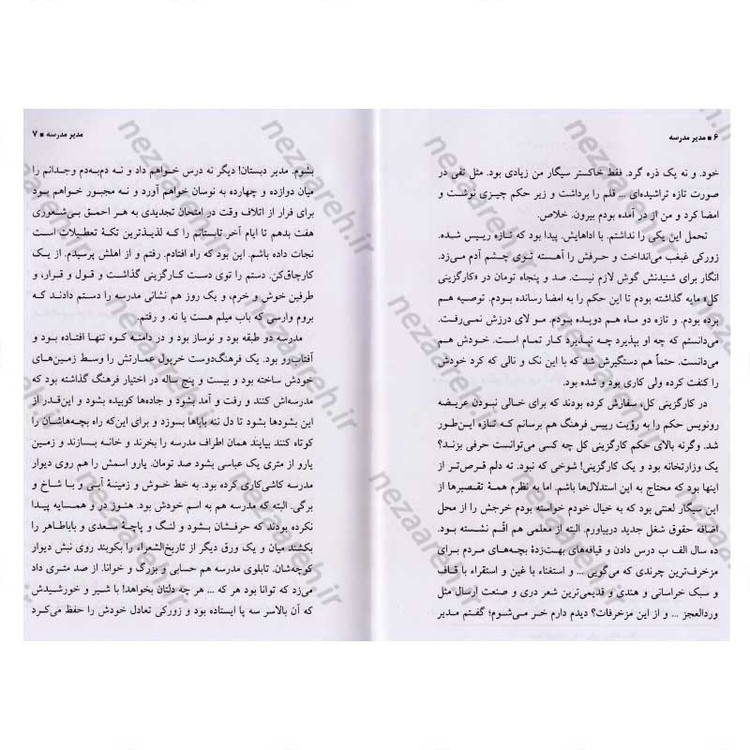 ۶ ■ مدیر مدرسه
خود. و نه یک ذره گرد. فقط خاکستر سیگار من زیادی بود. مثل تفی در
صورت تازه تراشیده‌ای ... قلم را برداشت و زیر حکم چیزی نوشت و
امضا کرد و من از در آمده بودم بیرون. خلاص.
تحمل این یکی را نداشتم. با اداهایش. پیدا بود که تازه رییس شده.
زورکی غبغب می‌انداخت و حرفش را آهسته توی چشم آدم می‌زد.
انگار برای شنیدنش گوش لازم نیست. صد و پنجاه تومان در «کارگزینی
کل» مایه گذاشته بودم تا این حکم را به امضا رسانده بودم. توصیه هم
برده بودم. و تازه دو ماه هم دویده بودم. مو لای درزش نمی‌رفت.
می‌دانستم که چه او بپذیرد چه نپذیرد کار تمام است. خودش هم
می‌دانست. حتماً هم دستگیرش شد که با این نک و نالی که کرد خودش
را کنفت کرده ولی کاری بود و شده بود.
در کارگزینی کل، سفارش کرده بودند که برای خالی نبودن عریضه
رونویس حکم را به رؤیت رییس فرهنگ هم برسانم که تازه این‌طور
شد. وگرنه بالای حکم کارگزینی کل چه کسی می‌توانست حرفی بزند؟
یک وزارتخانه بود و یک کارگزینی! شوخی که نبود. ته دلم قرص‌تر از
اینها بود که محتاج به این استدلال‌ها باشم. اما به نظرم همهٔ تقصیرها از
این سیگار لعنتی بود که به خیال خودم خواسته بودم خرجش را از محل
اضافه حقوق شغل جدید دربیاورم. البته از معلمی هم اقم نشسته بود.
ده سال الف ب درس دادن و قیافه‌های بهت‌زدهٔ بچه‌های مردم برای
مزخرف‌ترین چرندی که می‌گویی ... و استغناء با غین و استقراء با قاف
و سبک خراسانی و هندی و قدیمی‌ترین شعر دری و صنعت ارسال مثل و
ردالعجز ... و از این مزخرفات؟ دیدم دارم خر می‌شوم؛ گفتم مدیر
مدیر مدرسه ■ ۷
بشوم. مدیر دبستان! دیگر نه درس خواهم داد و نه دم‌به‌دم وجدانم را
میان دوازده و چهارده به نوسان خواهم آورد و نه مجبور خواهم بود
برای فرار از اتلاف وقت در امتحان تجدیدی به هر احمق بی‌شعوری
هفت بدهم تا ایام آخر تابستانم را که لذیذترین تکهٔ تعطیلات است
نجات داده باشم. این بود که راه افتادم. رفتم و از اهلش پرسیدم. از یک
کارچاق‌کن. دستم را توی دست کارگزینی گذاشت و قول و قرار، و
طرفین خوش و خرم، و یک روز هم نشانی مدرسه را دستم دادند که
بروم وارسی که باب میلم هست یا نه. و رفتم.
مدرسه دو طبقه بود و نوساز بود و در دامنه کوه تنها افتاده بود و
آفتاب‌رو بود. یک فرهنگ‌دوست خرپول عمارتش را وسط زمین‌های
خودش ساخته بود و بیست و پنج ساله در اختیار فرهنگ گذاشته بود که
مدرسه‌اش کنند و رفت و آمد بشود و جاده‌ها کوبیده بشود و این‌قدر از
این بشودها بشود تا دل ننه باباها بسوزد و برای این‌که راه بچه‌هاشان را
کوتاه کنند بیایند همان اطراف مدرسه را بخرند و خانه بسازند و زمین
یارو از متری یک عباسی بشود صد تومان. یارو اسمش را هم روی دیوار
مدرسه کاشی‌کاری کرده بود. به خط خوش و زمینهٔ آبی و با شاخ و
برگی. البته که مدرسه هم به اسم خودش بود. هنوز در و همسایه پیدا
نکرده بودند که حرفشان بشود و لنگ و پاچهٔ سعدی و باباطاهر را
بکشند میان و یک ورق دیگر از تاریخ‌الشعراء را بکوبند روی نبش دیوار
کوچه‌شان. تابلوی مدرسه هم حسابی و بزرگ و خوانا. از صد متری داد
می‌زد که توانا بود هر که ... هر چه دلتان بخواهد! با شیر و خورشیدش
که آن بالاسر سه پا ایستاده بود و زورکی تعادل خودش را حفظ می‌کرد
nezaareh.ir